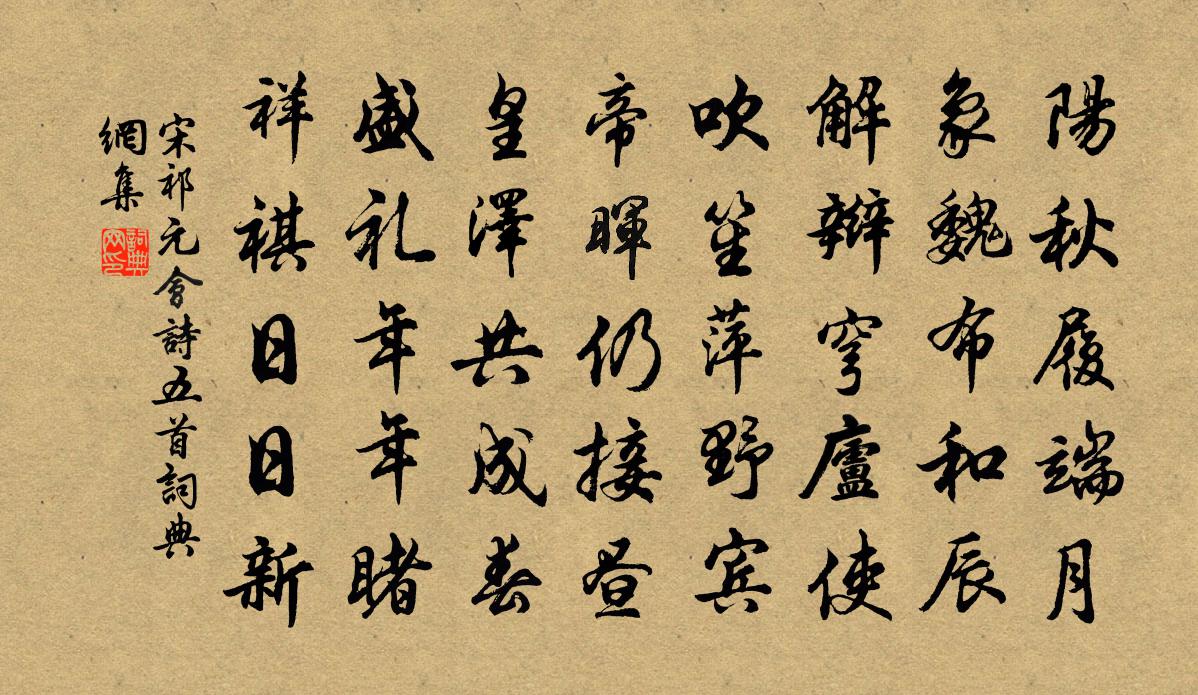 陽秋履端月
象魏布和辰
解辮穹廬使
吹笙萍野賓
帝暉仍接昼
皇澤共成春
盛礼年年睹
祥祺日日新
宋祁元會詩五首詞典
網集
詞典網印